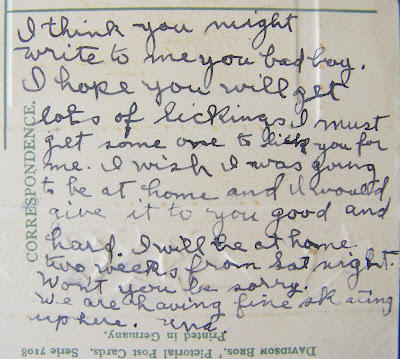 I think you might
write to me you bad boy.
I hope you will get
lots of lickings I must
get some one to lick you for
me. I wish I was going
to be at home and I would
give it to you good and
hard. I will be at home
two weeks from Sat night.
Wont you be sorry.
We are having fine skating
up here.
CORRESPONDENCE.
DAVIDSON BROS.' Pictorial Post Cards. Serie 7108
Printed in Germany.